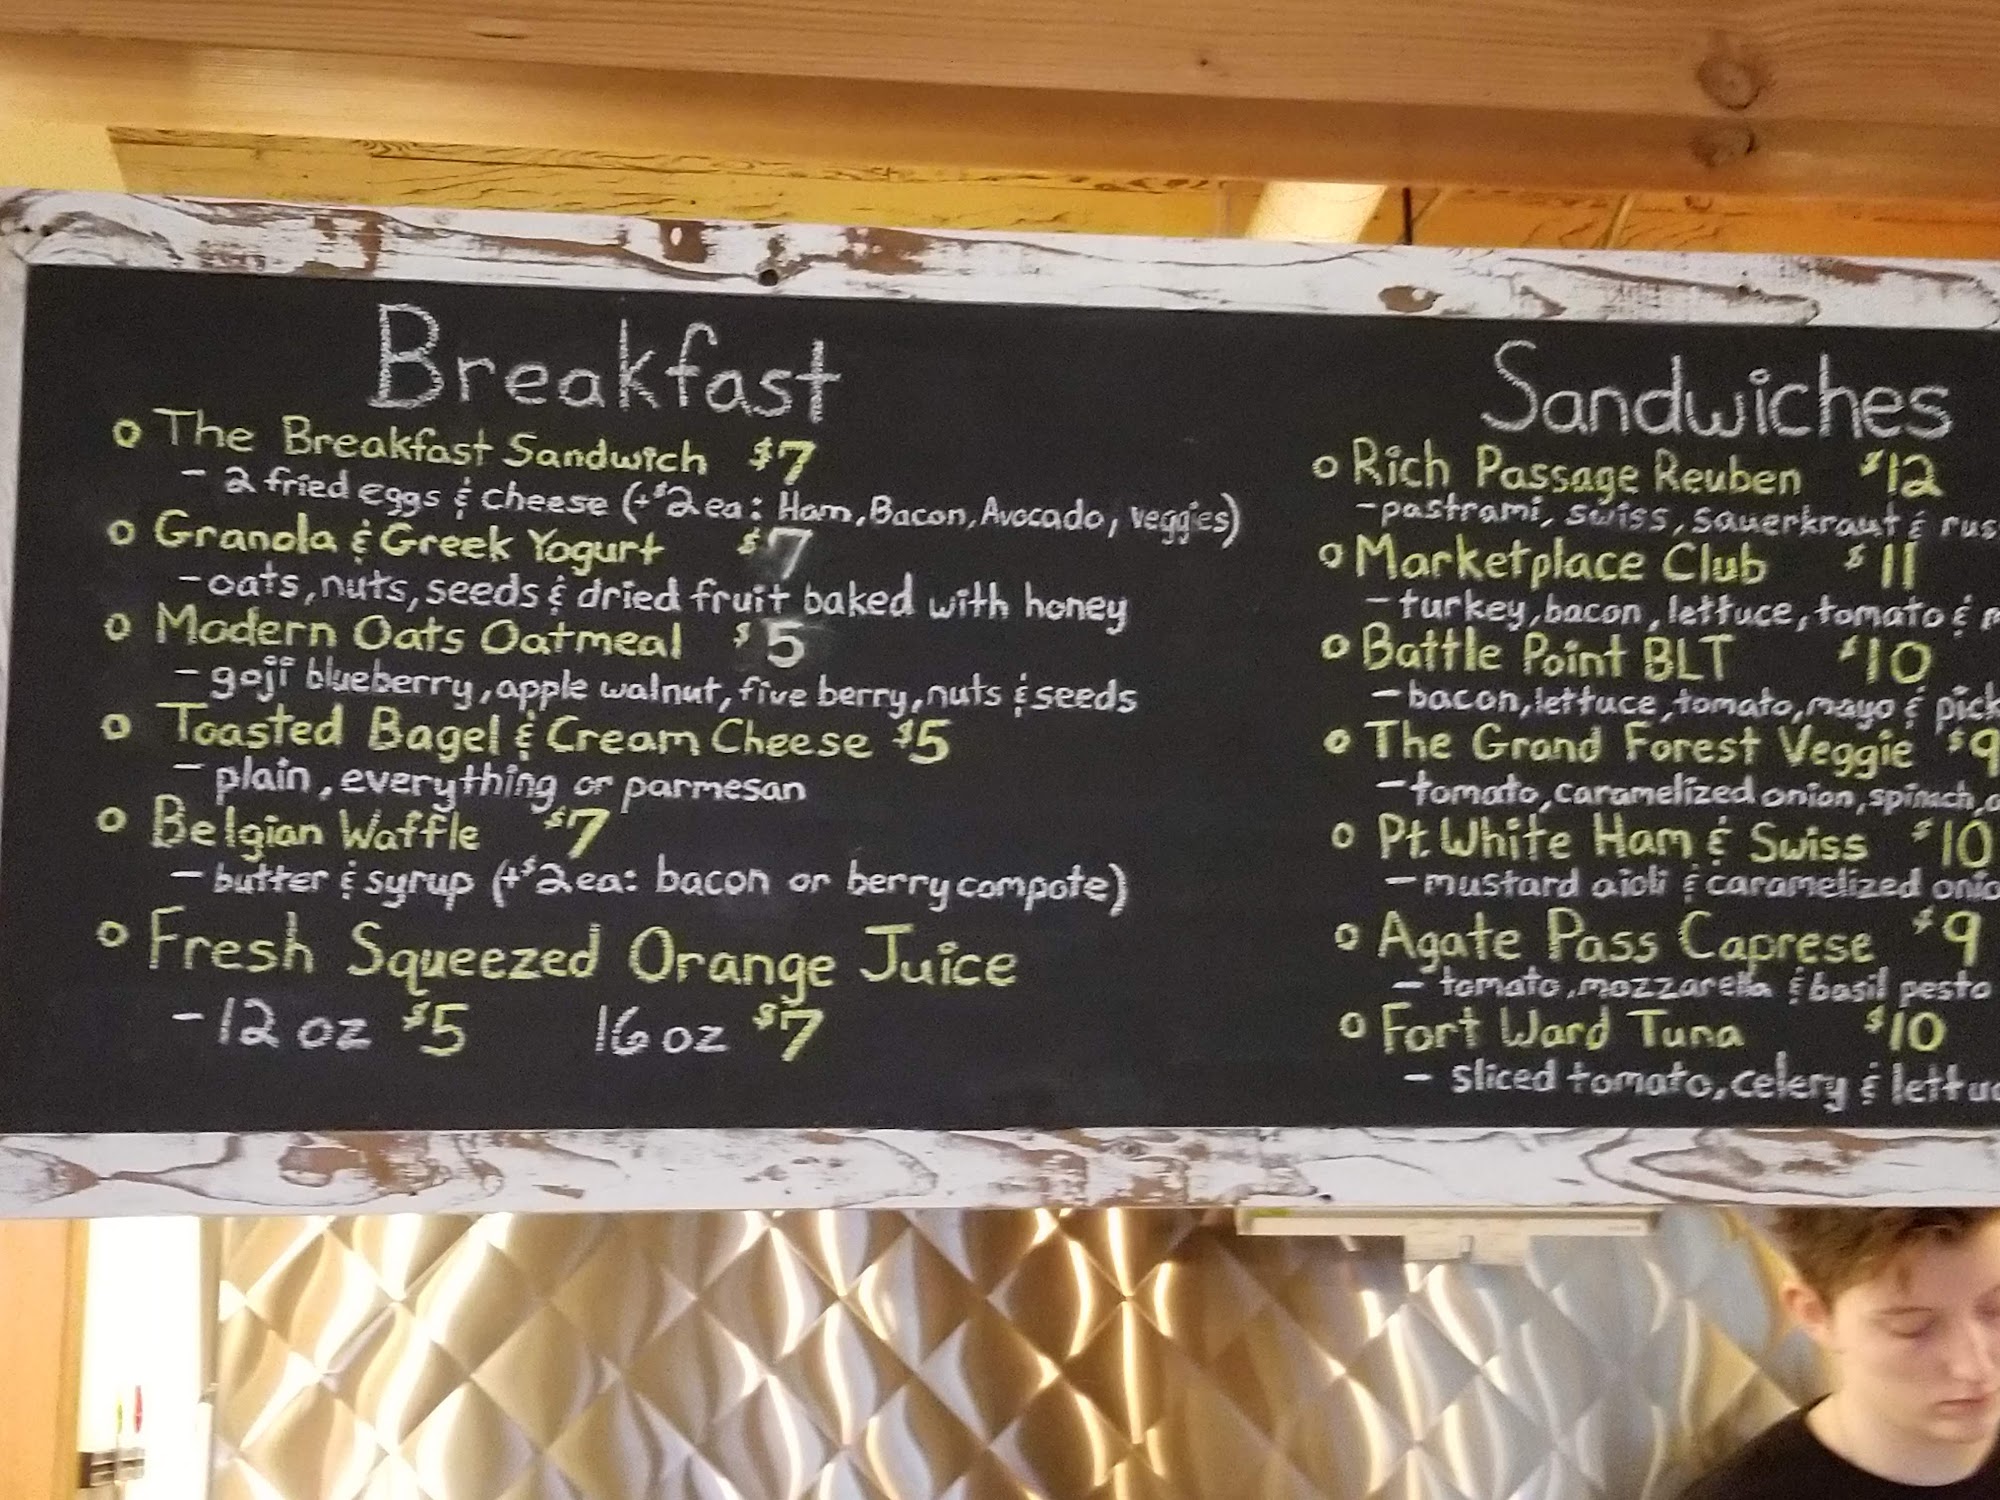 Breakfast
o The Breakfast Sandwich $7
- 2 fried eggs & cheese (+$2 ea: Ham, Bacon, Avocado, veggies)
o Granola & Greek Yogurt $7
- oats, nuts, seeds & dried fruit baked with honey
o Modern Oats Oatmeal $5
- goji blueberry, apple walnut, five berry, nuts & seeds
o Toasted Bagel & Cream Cheese $5
- plain, everything or parmesan
o Belgian Waffle $7
- butter & syrup (+$2 ea: bacon or berry compote)
o Fresh Squeezed Orange Juice
- 12 oz $5 16 oz $7
Sandwiches
o Rich Passage Reuben $12
- pastrami, swiss, sauerkraut &
o Marketplace Club $11
- turkey, bacon, lettuce, tomato &
o Battle Point BLT $10
- bacon, lettuce, tomato, mayo &
o The Grand Forest Veggie $9
- tomato, caramelized onion, spinach,
o Pt. White Ham & Swiss $10
- mustard aioli & caramelized
o Agate Pass Caprese $9
- tomato, mozzarella & basil pesto
o Fort Ward Tuna $10
- sliced tomato, celery &